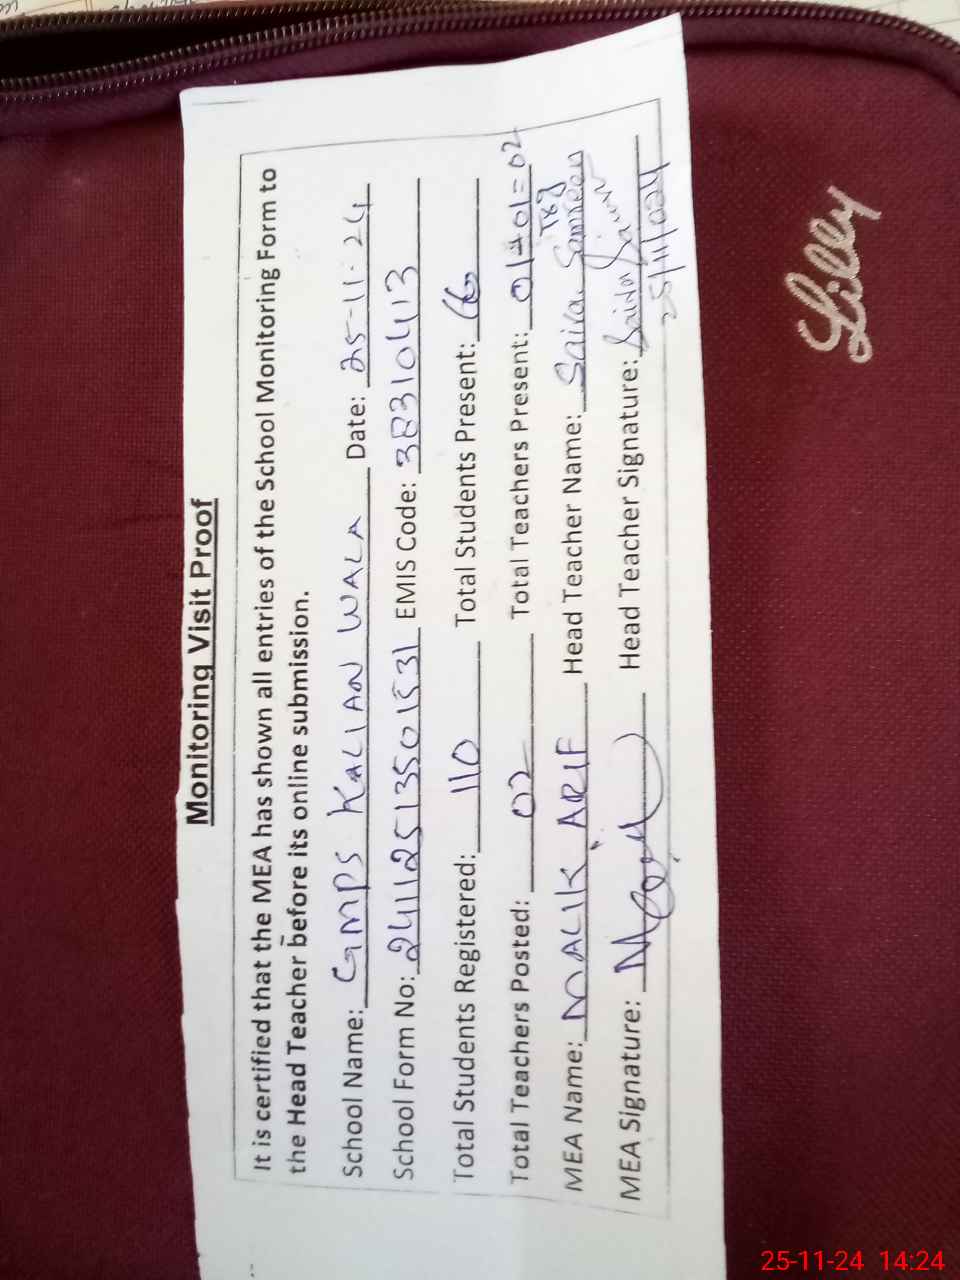 Monitoring Visit Proof
It is certified that the MEA has shown all entries of the School Monitoring Form to
the Head Teacher before its online submission.
School Name: GMPS KALIAN WALA Date: 25-11-24
School Form No: 24112513501531 EMIS Code: 38310413
Total Students Registered: 110 Total Students Present: 66
Total Teachers Posted: 02 Total Teachers Present: 01+01=02
MEA Name: MALIK ARIF Head Teacher Name: Saira Samreen
MEA Signature: Head Teacher Signature: Saira
25/11/024
Lilly
25-11-24 14:24